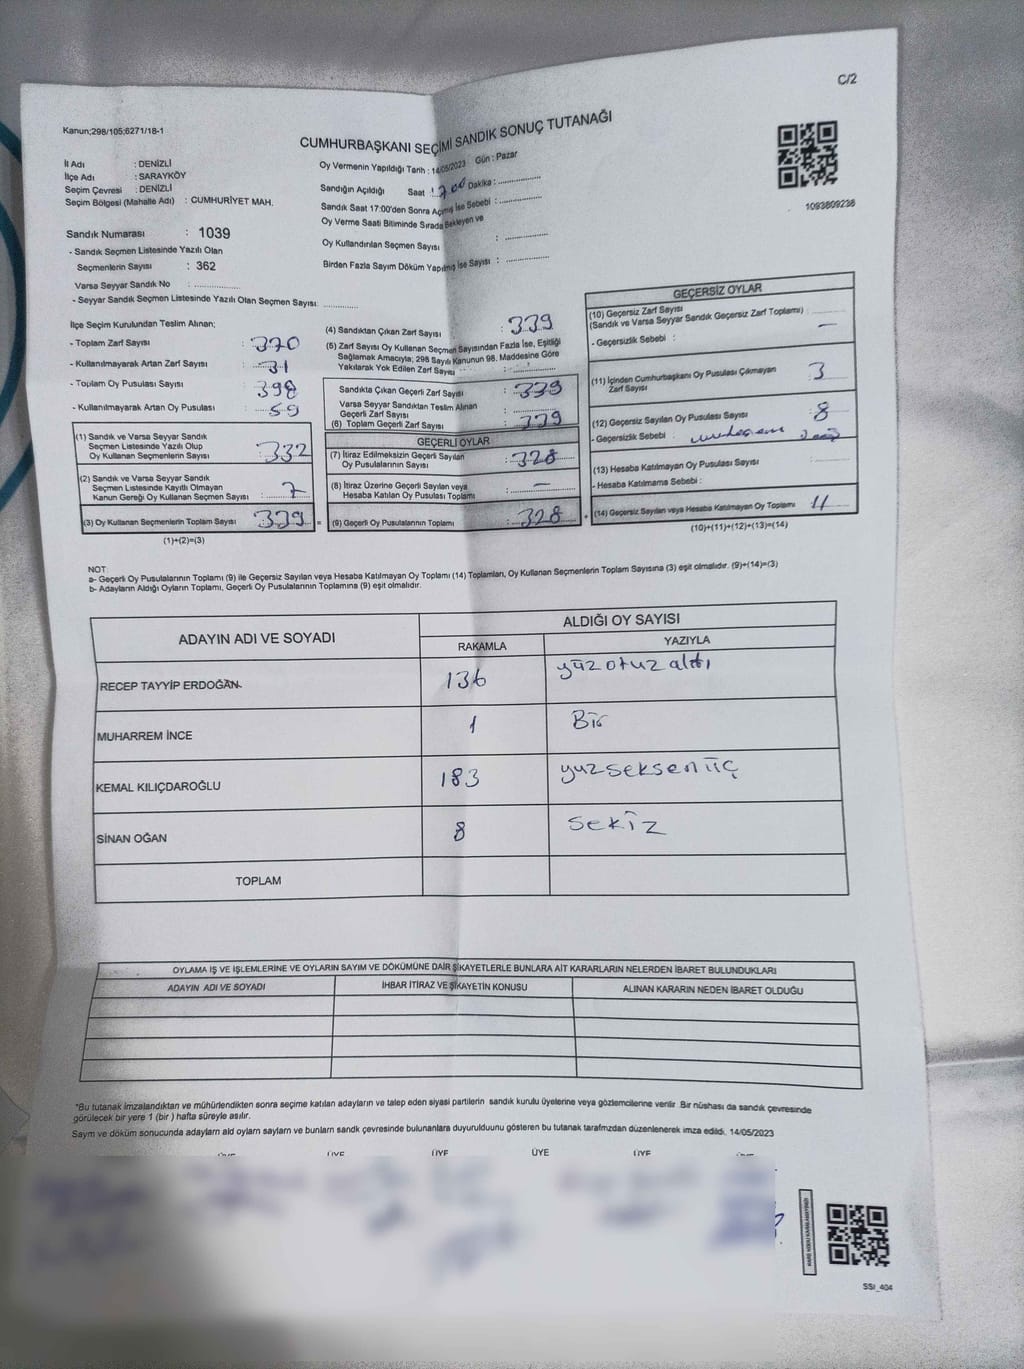 C/2
Kanun;298/105;6271/18-1
CUMHURBAŞKANI SEÇİMİ SANDIK SONUÇ TUTANAĞI
İl Adı : DENİZLİ
İlçe Adı : SARAYKÖY
Seçim Çevresi : DENİZLİ
Seçim Bölgesi (Mahalle Adı) : CUMHURİYET MAH.
Sandık Numarası : 1039
- Sandık Seçmen Listesinde Yazılı Olan
Seçmenlerin Sayısı : 362
Varsa Seyyar Sandık No : ..............
- Seyyar Sandık Seçmen Listesinde Yazılı Olan Seçmen Sayısı: ............
Oy Vermenin Yapıldığı Tarih : 14/05/2023 Gün : Pazar
Sandığın Açıldığı Saat : 17.00 Dakika : ..............
Sandık Saat 17:00'den Sonra Açılmış İse Sebebi : ..............
Oy Verme Saati Bitiminde Sırada Bekleyen ve
Oy Kullandırılan Seçmen Sayısı : ..............
Birden Fazla Sayım Döküm Yapılmış İse Sayısı : ..............
1093809236
İlçe Seçim Kurulundan Teslim Alınan;
- Toplam Zarf Sayısı : 370
- Kullanılmayarak Artan Zarf Sayısı : 31
- Toplam Oy Pusulası Sayısı : 398
- Kullanılmayarak Artan Oy Pusulası : 59
(1) Sandık ve Varsa Seyyar Sandık
Seçmen Listesinde Yazılı Olup
Oy Kullanan Seçmenlerin Sayısı : 332
(2) Sandık ve Varsa Seyyar Sandık
Seçmen Listesinde Kayıtlı Olmayan
Kanun Gereği Oy Kullanan Seçmen Sayısı : 7
(3) Oy Kullanan Seçmenlerin Toplam Sayısı 339
(1)+(2)=(3)
(4) Sandıktan Çıkan Zarf Sayısı : 339
(5) Zarf Sayısı Oy Kullanan Seçmen Sayısından Fazla İse, Eşitliği
Sağlamak Amacıyla; 298 Sayılı Kanunun 98. Maddesine Göre
Yakılarak Yok Edilen Zarf Sayısı : ..............
Sandıkta Çıkan Geçerli Zarf Sayısı : 339
Varsa Seyyar Sandıktan Teslim Alınan
Geçerli Zarf Sayısı : ..............
(6) Toplam Geçerli Zarf Sayısı : 339
GEÇERLİ OYLAR
(7) İtiraz Edilmeksizin Geçerli Sayılan
Oy Pusulalarının Sayısı : 328
(8) İtiraz Üzerine Geçerli Sayılan veya
Hesaba Katılan Oy Pusulası Toplamı : —
= (9) Geçerli Oy Pusulalarının Toplamı : 328
GEÇERSİZ OYLAR
(10) Geçersiz Zarf Sayısı
(Sandık ve Varsa Seyyar Sandık Geçersiz Zarf Toplamı) : —
- Geçersizlik Sebebi :
(11) İçinden Cumhurbaşkanı Oy Pusulası Çıkmayan
Zarf Sayısı 3
(12) Geçersiz Sayılan Oy Pusulası Sayısı : 8
- Geçersizlik Sebebi :
(13) Hesaba Katılmayan Oy Pusulası Sayısı
- Hesaba Katılmama Sebebi :
+ (14) Geçersiz Sayılan veya Hesaba Katılmayan Oy Toplamı 11
(10)+(11)+(12)+(13)=(14)
NOT:
a- Geçerli Oy Pusulalarının Toplamı (9) ile Geçersiz Sayılan veya Hesaba Katılmayan Oy Toplamı (14) Toplamları, Oy Kullanan Seçmenlerin Toplam Sayısına (3) eşit olmalıdır. (9)+(14)=(3)
b- Adayların Aldığı Oyların Toplamı, Geçerli Oy Pusulalarının Toplamına (9) eşit olmalıdır.
ADAYIN ADI VE SOYADI
ALDIĞI OY SAYISI
RAKAMLA YAZIYLA
RECEP TAYYİP ERDOĞAN 136 yüz otuz altı
MUHARREM İNCE 1 Bir
KEMAL KILIÇDAROĞLU 183 yuzseksenüç
SİNAN OĞAN 8 sekiz
TOPLAM
OYLAMA İŞ VE İŞLEMLERİNE VE OYLARIN SAYIM VE DÖKÜMÜNE DAİR ŞİKAYETLERLE BUNLARA AİT KARARLARIN NELERDEN İBARET BULUNDUKLARI
ADAYIN ADI VE SOYADI İHBAR İTİRAZ VE ŞİKAYETİN KONUSU ALINAN KARARIN NEDEN İBARET OLDUĞU
"Bu tutanak imzalandıktan ve mühürlendikten sonra seçime katılan adayların ve talep eden siyasi partilerin sandık kurulu üyelerine veya gözlemcilerine verilir. Bir nüshası da sandık çevresinde
görülecek bir yere 1 (bir ) hafta süreyle asılır.
Sayım ve döküm sonucunda adayların ald oyların sayların ve bunların sandk çevresinde bulunanlara duyurulduunu gösteren bu tutanak tarafmzdan düzenlenerek imza edildi. 14/05/2023
ÜYE ÜYE ÜYE ÜYE ÜYE
SSI_404